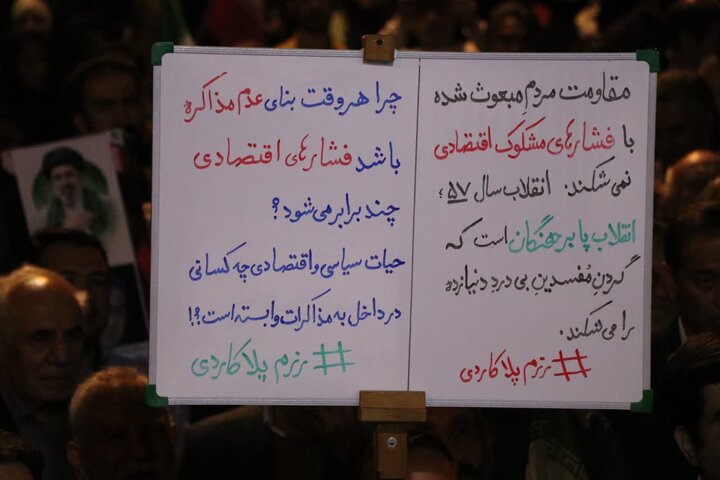 مقاومت مردمِ مبعوث شده
با فشارهای مشکوک اقتصادی
نمی‌شکند. انقلاب سال ۵۷؛
انقلاب پابرهنگان است که
گردنِ مُفسدینِ بی دردِ دنیازده
را می‌شکند.
#رزم_پلاکاردی
چرا هر وقت بنای عدم مذاکره
باشد فشارهای اقتصادی
چند برابر می‌شود؟
حیات سیاسی و اقتصادی چه کسانی
در داخل به مذاکرات وابسته است؟!
#رزم پلاکاردی